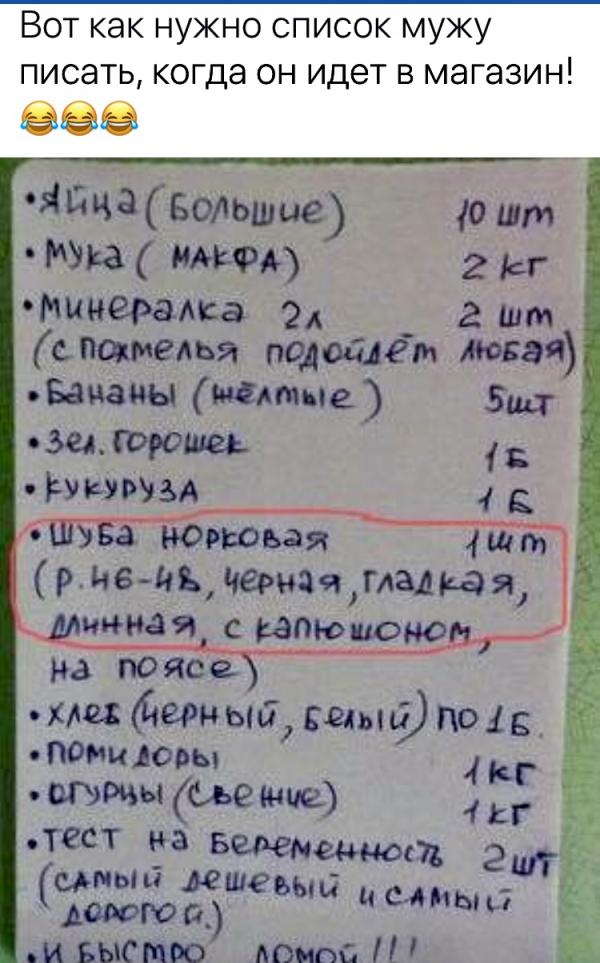 Вот как нужно список мужу
писать, когда он идет в магазин!
😂😂😂
•Яйца (большие) 10 шт
•Мука (МАКФА) 2 кг
•Минералка 2л 2 шт
(с похмелья подойдёт любая)
•Бананы (жёлтые) 5шт
•Зел. горошек 1 Б
•кукуруза 1 Б
•Шуба норковая 1 шт
(р. 46-48, черная, гладкая,
длинная, с капюшоном,
на поясе)
•хлеб (черный, белый) по 1 Б.
•помидоры 1 кг
•огурцы (свежие) 1 кг
•тест на беременность 2 шт
(самый дешевый и самый
дорогой.)
•И быстро домой!!!